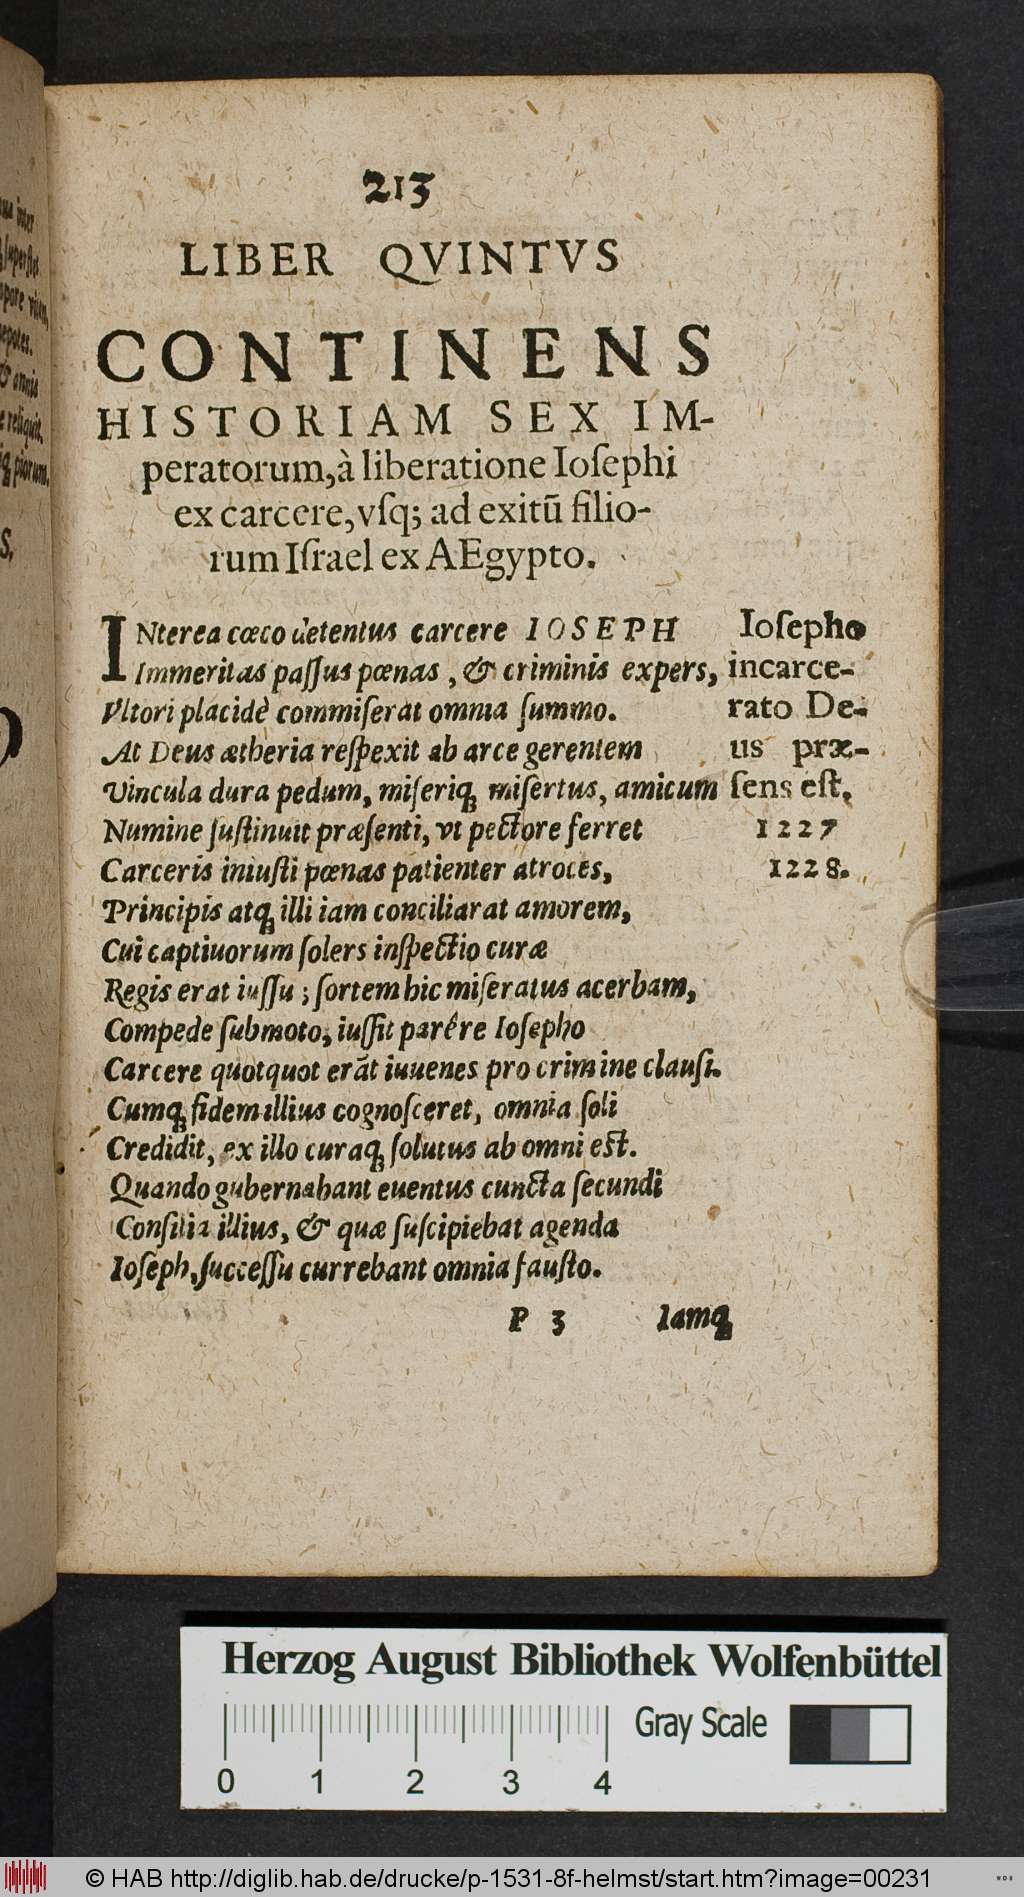 213
LIBER QVINTVS
CONTINENS
HISTORIAM SEX IM-
peratorum,à liberatione Ioſephi
ex carcere,vſq; ad exitū filio-
rum Iſrael ex AEgypto.
INterea cœco detentus carcere IOSEPH
Immeritas paſſus pœnas, & criminis expers,
Vltori placidè commiſerat omnia ſummo.
At Deus ætheria reſpexit ab arce gerentem
Vincula dura pedum, miſeriq́; miſertus, amicum
Numine ſuſtinuit præſenti, vt pectore ferret
Carceris iniuſti pœnas patienter atroces,
Principis atq; illi iam conciliarat amorem,
Cui captiuorum ſolers inſpectio curæ
Regis erat iuſſu; ſortem hic miſeratus acerbam,
Compede ſubmoto, iuſſit parêre Ioſepho
Carcere quotquot erāt iuuenes pro crimine clauſi.
Cumq; fidem illius cognoſceret, omnia ſoli
Credidit, ex illo curaq; ſolutus ab omni eſt.
Quando gubernabant euentus cuncta ſecundi
Conſilia illius, & quæ ſuſcipiebat agenda
Ioſeph,ſucceſſu currebant omnia fauſto.
Ioſepho
incarce-
rato De-
us præ-
ſens eſt.
1227
1228.
P 3 Iamq;
Herzog August Bibliothek Wolfenbüttel
Gray Scale
0 1 2 3 4
© HAB http://diglib.hab.de/drucke/p-1531-8f-helmst/start.htm?image=00231